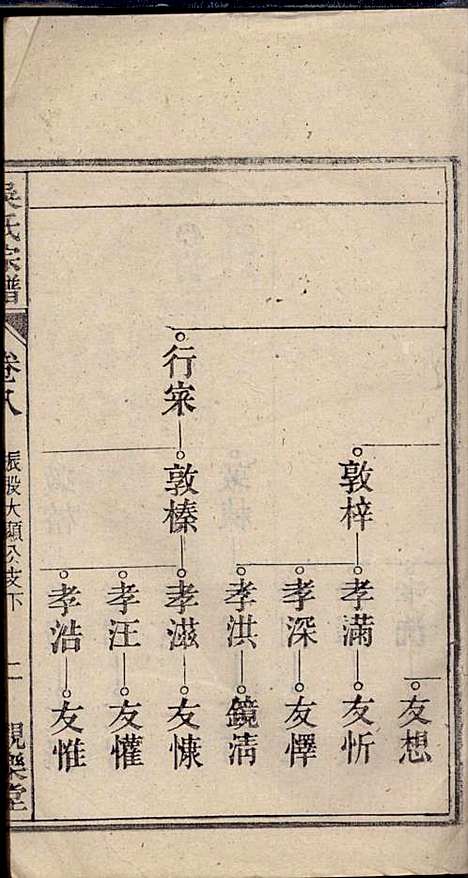 友想
敦梓
孝滿
友忻
孝深
友懌
孝洪
鏡清
行宷
敦榛
孝滋
友慷
孝汪
友懽
孝浩
友惟
吳氏宗譜
卷八
振股大顯公支下
二
觀樂堂